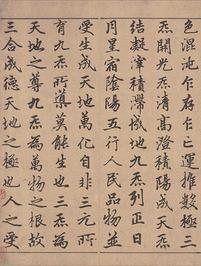 色混沌乍存乍亡運推數極三
炁開光炁清高澄積陽成天炁
結凝滓積滯成地九炁列正日
月星宿陰陽五行人民品物並
受生成天地萬化自非三元所
育九炁所導莫能生也三炁為
天地之尊九炁為萬物之根故
三合成德天地之極也人之受